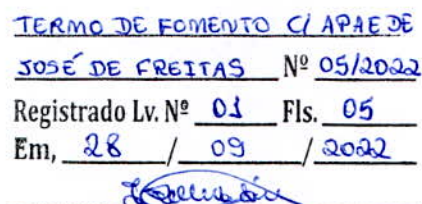 TERMO DE FOMENTO C/ APAE DE
JOSÉ DE FREITAS Nº 05/2022
Registrado Lv. Nº 01 Fls. 05
Em, 28 / 09 / 2022